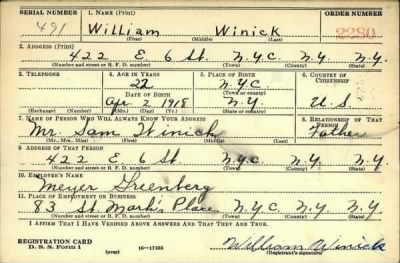 SERIAL NUMBER 1. NAME (Print) ORDER NUMBER
491 William Winick 2280
(First) (Middle) (Last)
2. ADDRESS (Print)
422 E 6 St. N.Y.C. N.Y. N.Y.
(Number and street or R. F. D. number) (Town) (County) (State)
3. TELEPHONE 4. AGE IN YEARS 5. PLACE OF BIRTH 6. COUNTRY OF CITIZENSHIP
22 N.Y.C.
DATE OF BIRTH (Town or county)
Apr 2 1918 N.Y. U.S.
(Exchange) (Number) (Mo.) (Day) (Yr.) (State or country)
7. NAME OF PERSON WHO WILL ALWAYS KNOW YOUR ADDRESS 8. RELATIONSHIP OF THAT PERSON
Mr. Sam Winick Father
(Mr., Mrs., Miss) (First) (Middle) (Last)
9. ADDRESS OF THAT PERSON
422 E 6 St N.Y.C. N.Y. N.Y.
(Number and street or R. F. D. number) (Town) (County) (State)
10. EMPLOYER'S NAME
Meyer Greenberg
11. PLACE OF EMPLOYMENT OR BUSINESS
83 St. Mark's Place N.Y.C. N.Y. N.Y.
(Number and street or R. F. D. number) (Town) (County) (State)
I AFFIRM THAT I HAVE VERIFIED ABOVE ANSWERS AND THAT THEY ARE TRUE.
REGISTRATION CARD
D. S. S. Form 1 (over) 16—17105 William Winick
(Registrant's signature)